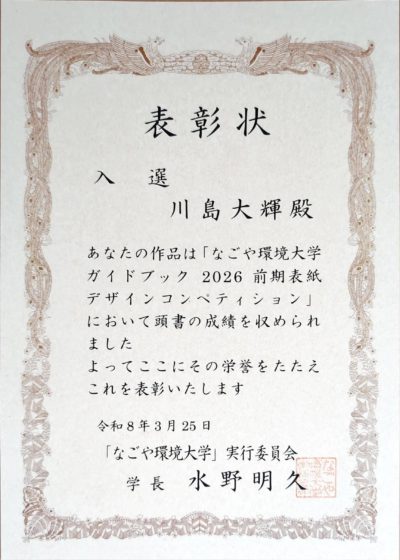 表彰状
入選
川島大輝殿
あなたの作品は「なごや環境大学
ガイドブック 2026 前期表紙
デザインコンペティション」
において頭書の成績を収められ
ました
よってここにその栄誉をたたえ
これを表彰いたします
令和8年3月25日
「なごや環境大学」実行委員会
学長 水野明久